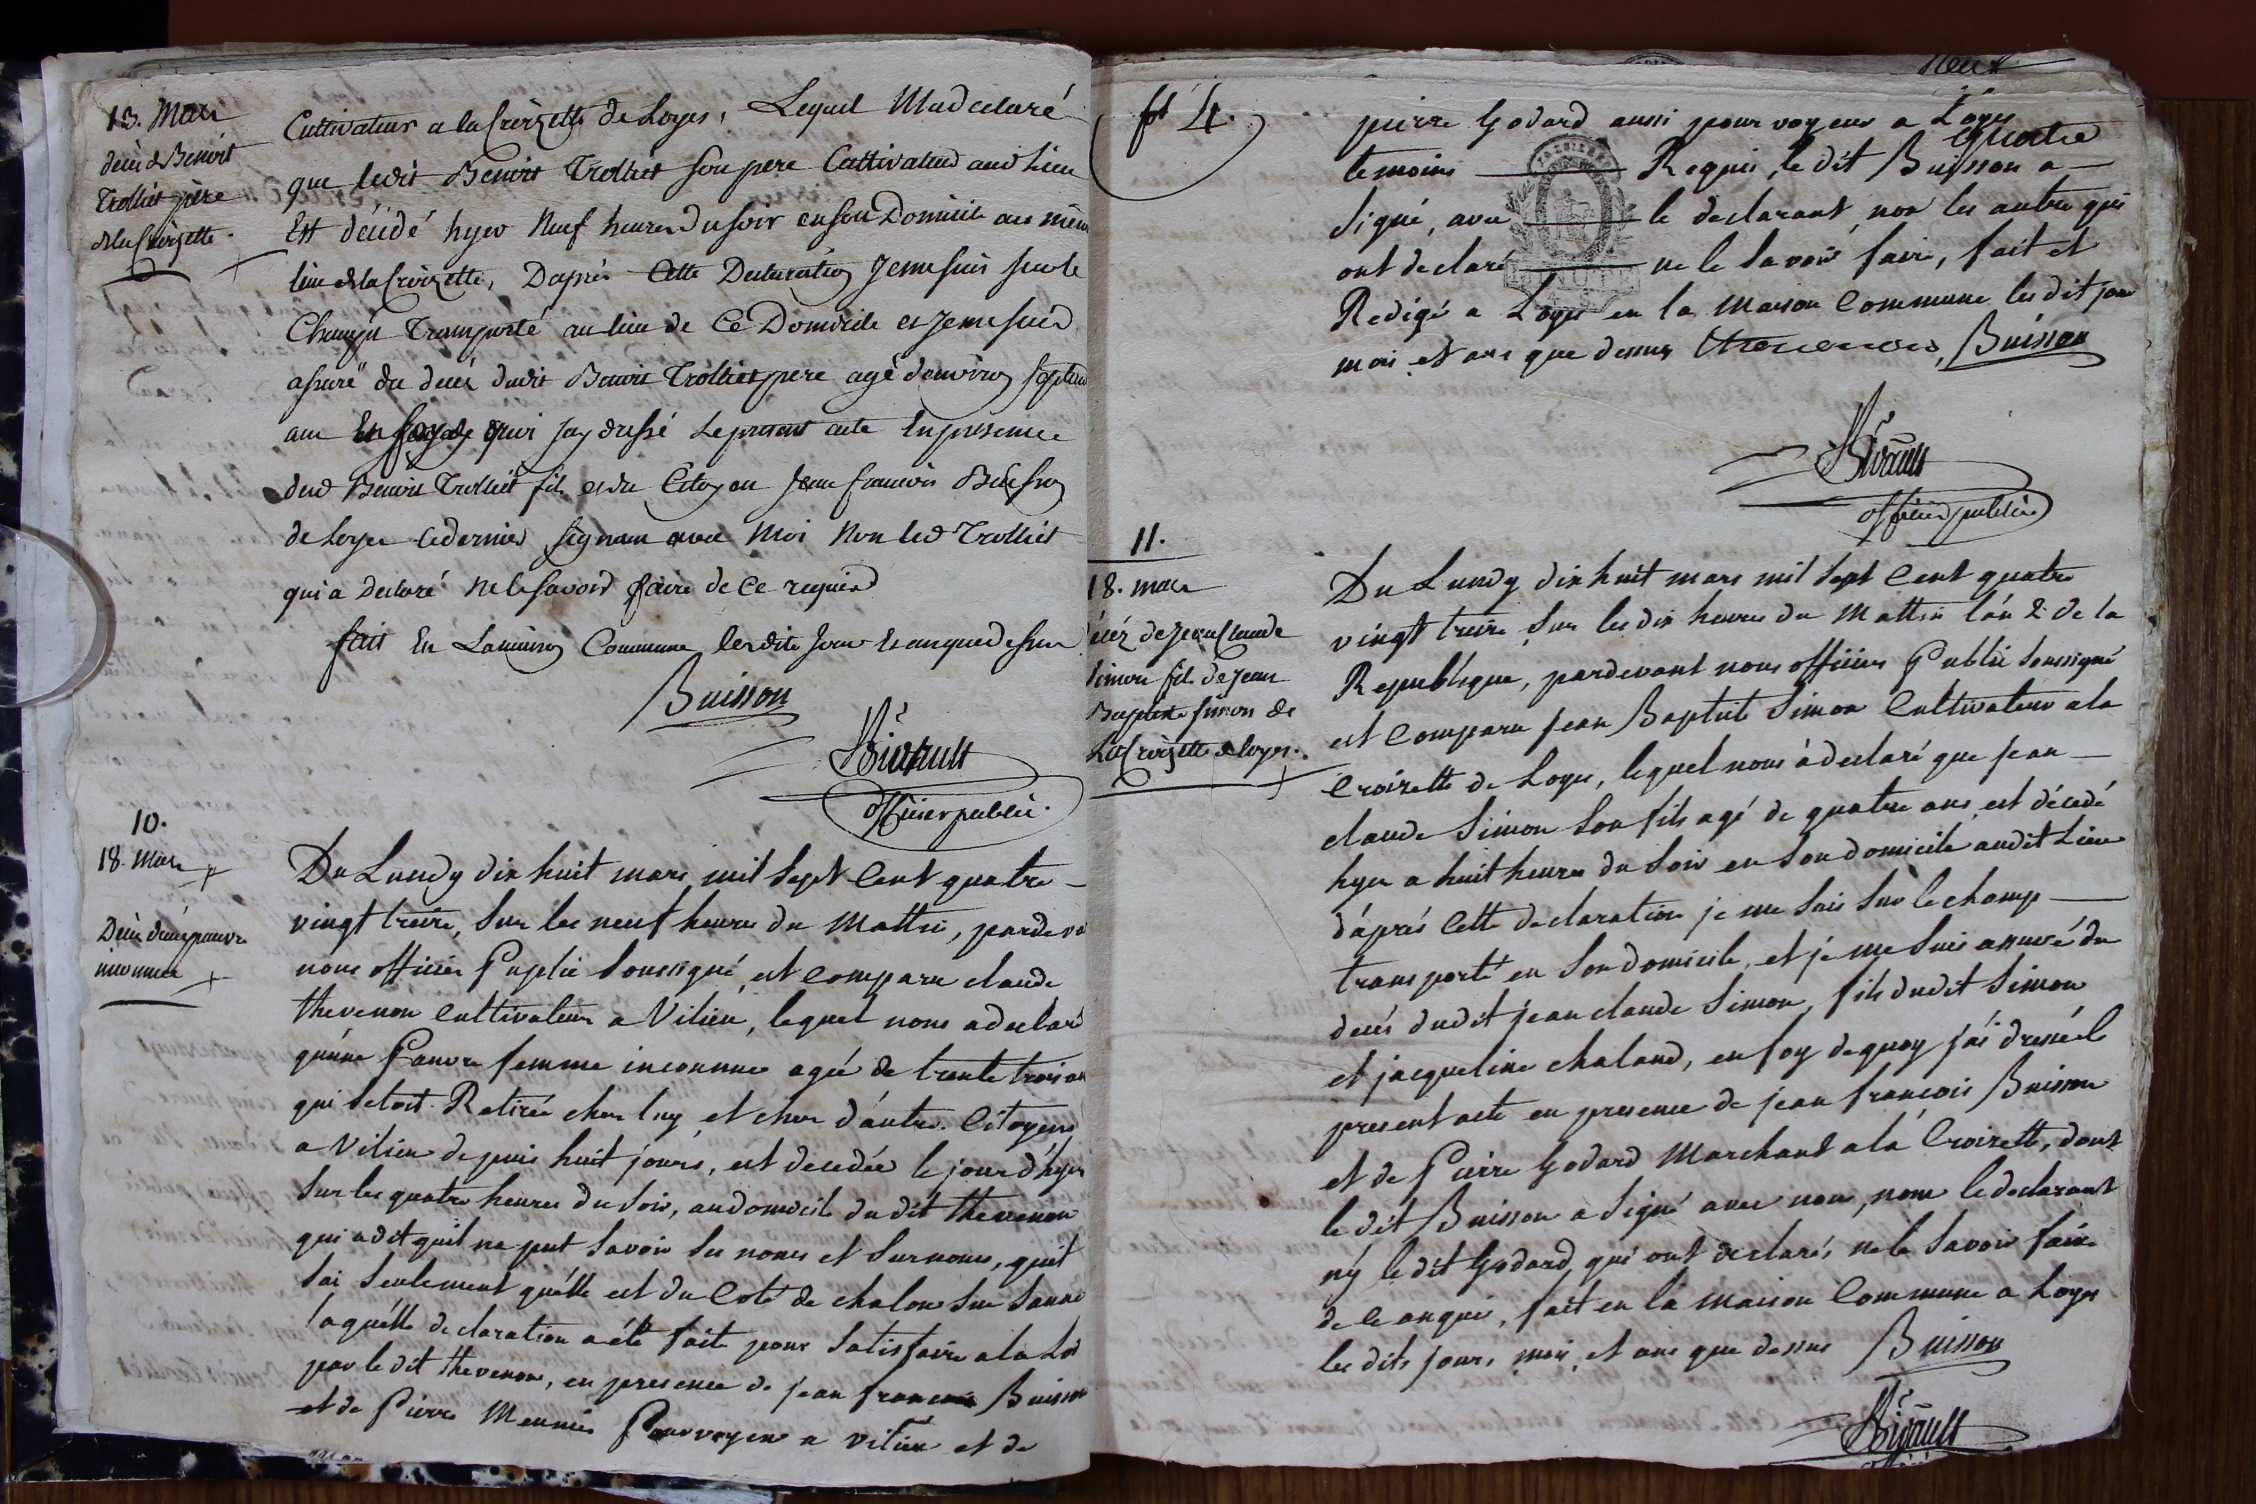 13. Mars
décès de Benoit
Trolliet père
de la Croizette
Cultivateur a la Croizette de Loyes, Lequel M'a declaré
que ledit Benoit Trolliet son pere Cultivateur aud Lieu
Est décédé hyer Neuf heures du soir en son Domicile au même
lieu de la Croizette, D'après Cette Declaration Je me suis sur le
Champ Transporté au lieu de Ce Domicile et Je me suis
assuré du decès dudit Benoit Trolliet pere agé d'environ septante
ans En foy de quoi J'ay dressé Le present acte En presence
dud Benoit Trolliet fils et du Citoyen Jean francois Buisson
de Loyes Ce dernier signant avec Moi Non led Trolliet
qui a Declaré Ne le savoir faire de Ce requis
fait En La maison Commune les dits Jour Et an que dessus
Buisson
Rivault
officier public
10.
18. Mars
Décès d'une pauvre
inconnue
Du Lundy dix huit mars mil Sept Cent quatre
vingt treize, Sur les neuf heures du Mattin, pardevant
nous officier Puplic Soussigné, est Comparu claude
thevenon Cultivateur a Vilieu, lequel nous a declaré
qu'une Pauvre femme inconnue agée de trente trois ans
qui s'etoit Retirée chez luy et chez d'autre Citoyens
a Vilieu depuis huit jours, est decedée le jour d'hyer
Sur les quatre heures du Soir, au domicile du dit thevenon
qui a dit quil ne put Savoir Ses noms et Surnoms, quil
Sai Seulement qu'elle est du Coté de chalon Sur Sanne
laquelle declaration a été faite pour Satisfaire a la Loi
par le dit thevenon, en presence de jean francois Buisson
et de Pierre Meunier Pourvoyeur a Vilieu et de
flt 4.
neuf
quatre
pierre Godard aussi pourvoyeur a Loyes
temoins Requis, le dit Buisson a
Signé, avec le declarant, non les autre qui
ont declaré ne le Savoir faire, fait et
Redigé a Loyes en la Maison Commune les dit jour
mois et ans que dessus thevenon, Buisson
Rivault
officier public
11.
18. mars
décéz de Jean Claude
Simon fils de Jean
Baptiste Simon de
La Croizette de loyes.
Du Lundy dix huit mars mil Sept Cent quatre
vingt treize Sur les dix heures du Mattin l'an 2 de la
Republique, pardevant nous officier Public Soussigné
est Comparu jean Baptiste Simon Cultivateur a la
Croizette de Loyes, lequel nous à declaré que jean
claude Simon Son fils agé de quatre ans est décedé
hyer a huit heures du Soir en Son domicile audit Lieu
d'áprés Cette declaration je me Suis Sur le champ
transporté en Son domicile, et je me Suis assuré du
decés dudit jean claude Simon, fils dudit Simon
et jacqueline chaland, en foy de quoy j'ai dressé le
present acte en presence de jean francois Buisson
et de Pierre Godard Marchand a la Croizette, dont
le dit Buisson a Signé avec nous, nom le declarant
ny le dit Godard, qui ont declarés ne le Savoir faire
de Ce enquis, fait en la maison Commune a Loyes
les dits jours, mois, et ans que dessus Buisson
Rivault